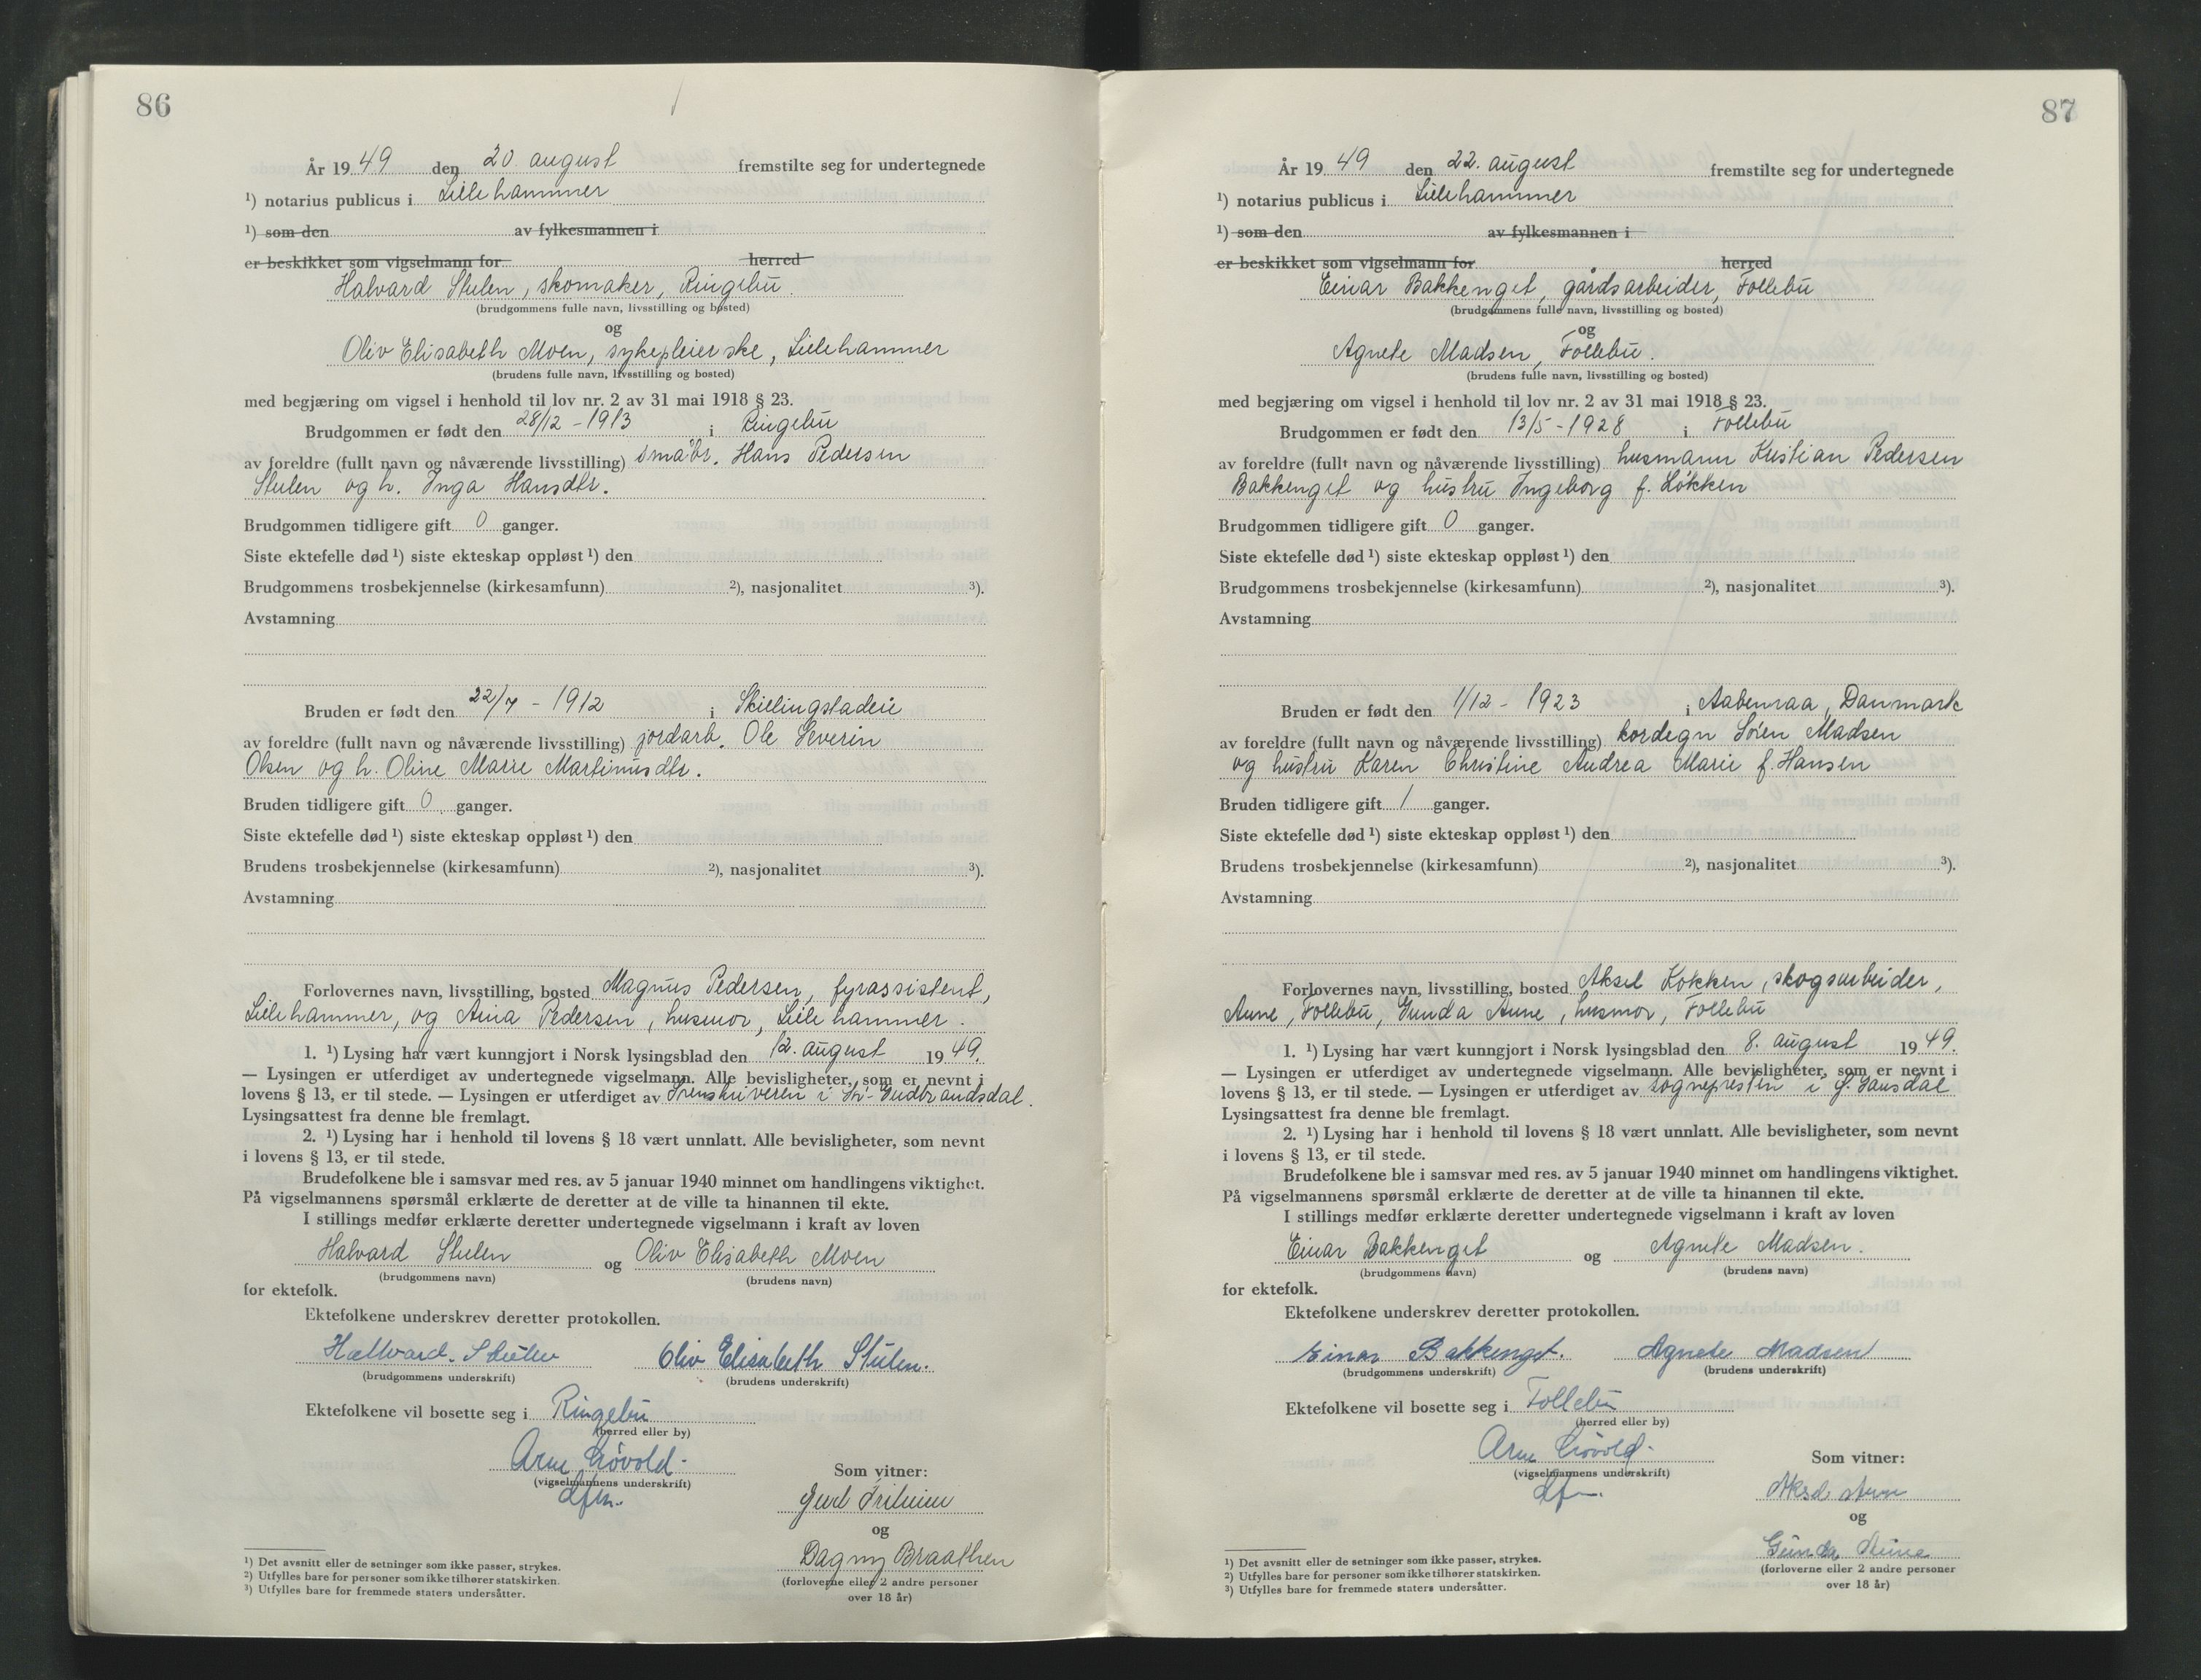 86
År 1949 den 20. august fremstilte seg for undertegnede
¹) notarius publicus i Lillehammer
¹) som den av fylkesmannen i
er beskikket som vigselmann for herred
Halvard Stulen, skomaker, Ringebu.
(brudgommens fulle navn, livsstilling og bosted)
og
Oliv Elisabeth Moen, sykepleierske, Lillehammer
(brudens fulle navn, livsstilling og bosted)
med begjæring om vigsel i henhold til lov nr. 2 av 31 mai 1918 § 23.
Brudgommen er født den 28/12 - 1913 i Ringebu
av foreldre (fullt navn og nåværende livsstilling) småbr. Hans Pedersen
Stulen og h. Inga Hansdtr.
Brudgommen tidligere gift 0 ganger.
Siste ektefelle død ¹) siste ekteskap oppløst ¹) den
Brudgommens trosbekjennelse (kirkesamfunn) ²), nasjonalitet ³).
Avstamning
Bruden er født den 22/7 - 1912 i Skillingstadlie
av foreldre (fullt navn og nåværende livsstilling) jordarb. Ole Severin
Olsen og h. Oline Marie Martinusdtr.
Bruden tidligere gift 0 ganger.
Siste ektefelle død ¹) siste ekteskap oppløst ¹) den
Brudens trosbekjennelse (kirkesamfunn) ²), nasjonalitet ³).
Avstamning
Forlovernes navn, livsstilling, bosted Magnus Pedersen, fyrassistent,
Lillehammer, og Aina Pedersen, husmor, Lillehammer.
1. ¹) Lysing har vært kunngjort i Norsk lysingsblad den 12. august 1949.
— Lysingen er utferdiget av undertegnede vigselmann. Alle bevisligheter, som er nevnt i
lovens § 13, er til stede. — Lysingen er utferdiget av Sorenskriveren i Sør-Gudbrandsdal.
Lysingsattest fra denne ble fremlagt.
2. ¹) Lysing har i henhold til lovens § 18 vært unnlatt. Alle bevisligheter, som nevnt
i lovens § 13, er til stede.
Brudefolkene ble i samsvar med res. av 5 januar 1940 minnet om handlingens viktighet.
På vigselmannens spørsmål erklærte de deretter at de ville ta hinannen til ekte.
I stillings medfør erklærte deretter undertegnede vigselmann i kraft av loven
Halvard Stulen og Oliv Elisabeth Moen
(brudgommens navn) (brudens navn)
for ektefolk.
Ektefolkene underskrev deretter protokollen.
Hallvard Stulen Oliv Elisabeth Stulen.
(brudgommens underskrift) (brudens underskrift)
Ektefolkene vil bosette seg i Ringebu
(herred eller by)
Arne Løvold
(vigselmannens underskrift)
dfm.
Som vitner:
og
Dagny Braathen
(forloverne eller 2 andre personer
over 18 år)
¹) Det avsnitt eller de setninger som ikke passer, strykes.
²) Utfylles bare for personer som ikke tilhører statskirken.
³) Utfylles bare for fremmede staters undersåtter.
87
År 1949 den 22. august fremstilte seg for undertegnede
¹) notarius publicus i Lillehammer
¹) som den av fylkesmannen i
er beskikket som vigselmann for herred
Einar Bakkenget, gårdsarbeider, Follebu
(brudgommens fulle navn, livsstilling og bosted)
og
Agnete Madsen, Follebu.
(brudens fulle navn, livsstilling og bosted)
med begjæring om vigsel i henhold til lov nr. 2 av 31 mai 1918 § 23.
Brudgommen er født den 13/5 - 1928 i Follebu
av foreldre (fullt navn og nåværende livsstilling) husmann Kristian Pedersen
Bakkenget og hustru Ingeborg f. Løkken
Brudgommen tidligere gift 0 ganger.
Siste ektefelle død ¹) siste ekteskap oppløst ¹) den
Brudgommens trosbekjennelse (kirkesamfunn) ²), nasjonalitet ³).
Avstamning
Bruden er født den 1/12 - 1923 i Aabenraa, Danmark
av foreldre (fullt navn og nåværende livsstilling) kordegn Sören Madsen
og hustru Karen Christine Andrea Marie f. Hansen
Bruden tidligere gift 1 ganger.
Siste ektefelle død ¹) siste ekteskap oppløst ¹) den
Brudens trosbekjennelse (kirkesamfunn) ²), nasjonalitet ³).
Avstamning
Forlovernes navn, livsstilling, bosted Aksel Løkken, skogsarbeider,
Aune, Follebu, Gunda Aune, husmor, Follebu
1. ¹) Lysing har vært kunngjort i Norsk lysingsblad den 8. august 1949.
— Lysingen er utferdiget av undertegnede vigselmann. Alle bevisligheter, som er nevnt i
lovens § 13, er til stede. — Lysingen er utferdiget av sognepresten i Ø. Gausdal
Lysingsattest fra denne ble fremlagt.
2. ¹) Lysing har i henhold til lovens § 18 vært unnlatt. Alle bevisligheter, som nevnt
i lovens § 13, er til stede.
Brudefolkene ble i samsvar med res. av 5 januar 1940 minnet om handlingens viktighet.
På vigselmannens spørsmål erklærte de deretter at de ville ta hinannen til ekte.
I stillings medfør erklærte deretter undertegnede vigselmann i kraft av loven
Einar Bakkenget og Agnete Madsen.
(brudgommens navn) (brudens navn)
for ektefolk.
Ektefolkene underskrev deretter protokollen.
Einar Bakkenget. Agnete Madsen
(brudgommens underskrift) (brudens underskrift)
Ektefolkene vil bosette seg i Follebu
(herred eller by)
Arne Løvold
(vigselmannens underskrift)
dfm.
Som vitner:
Aksel Aune
og
Gunda Aune
(forloverne eller 2 andre personer
over 18 år)
¹) Det avsnitt eller de setninger som ikke passer, strykes.
²) Utfylles bare for personer som ikke tilhører statskirken.
³) Utfylles bare for fremmede staters undersåtter.